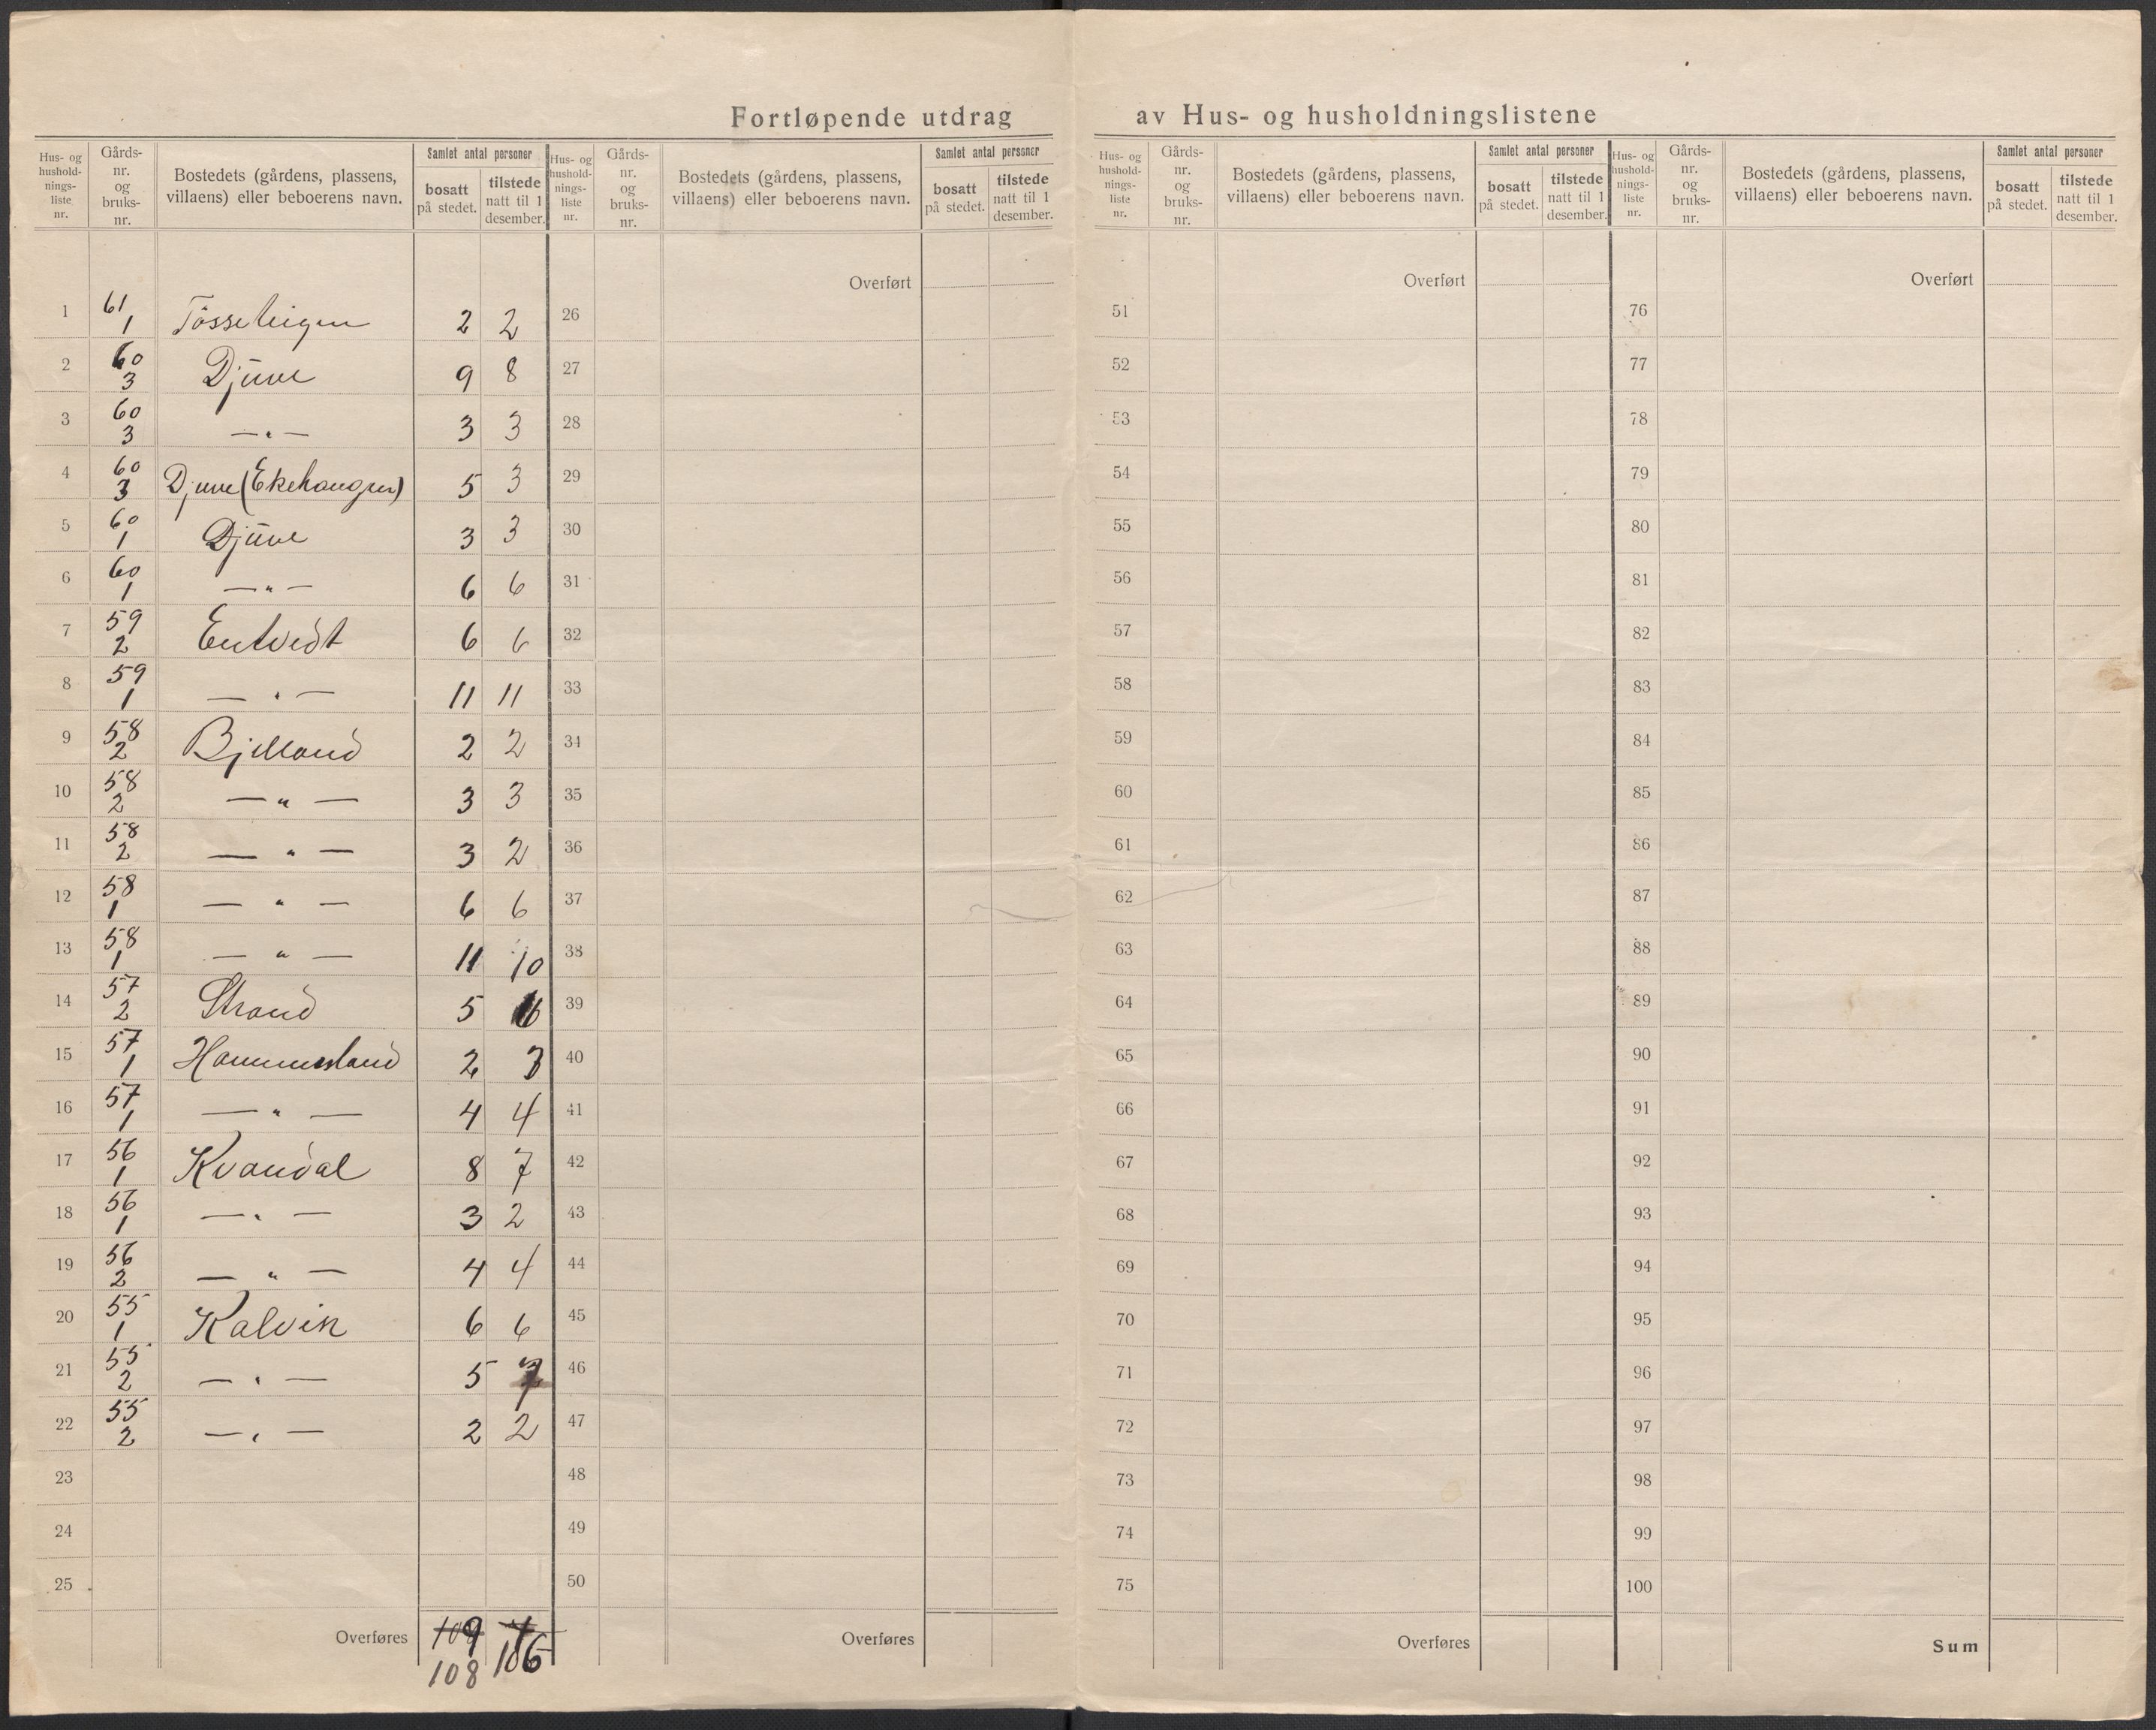 Fortløpende utdrag av Hus- og husholdningslistene
Hus- og hushold-nings-liste nr. | Gårds-nr. og bruks-nr. | Bostedets (gårdens, plassens, villaens) eller beboerens navn. | Samlet antal personer | bosatt på stedet. | tilstede natt til 1 desember.
1 61 1 Tösseteigen 2 2
2 60 3 Djuve 9 8
3 60 3 — " — 3 3
4 60 3 Djuve (Ekehaugen) 5 3
5 60 1 Djuve 3 3
6 60 1 — " — 6 6
7 59 2 Entvedt 6 6
8 59 1 — " — 11 11
9 58 2 Bjelland 2 2
10 58 2 — " — 3 3
11 58 2 — " — 3 2
12 58 1 — " — 6 6
13 58 1 — " — 11 10
14 57 2 Strand 5 6
15 57 1 Hammersland 2 3
16 57 1 — " — 4 4
17 56 1 Kvandal 8 7
18 56 1 — " — 3 2
19 56 2 — " — 4 4
20 55 1 Kalvik 6 6
21 55 2 — " — 5 7
22 55 2 — " — 2 2
23
24
25
Overføres 109
108 106
Hus- og hushold-nings-liste nr. | Gårds-nr. og bruks-nr. | Bostedets (gårdens, plassens, villaens) eller beboerens navn. | Samlet antal personer | bosatt på stedet. | tilstede natt til 1 desember.
Overført
26
27
28
29
30
31
32
33
34
35
36
37
38
39
40
41
42
43
44
45
46
47
48
49
50
Overføres
Hus- og hushold-nings-liste nr. | Gårds-nr. og bruks-nr. | Bostedets (gårdens, plassens, villaens) eller beboerens navn. | Samlet antal personer | bosatt på stedet. | tilstede natt til 1 desember.
Overført
51
52
53
54
55
56
57
58
59
60
61
62
63
64
65
66
67
68
69
70
71
72
73
74
75
Overføres
Hus- og hushold-nings-liste nr. | Gårds-nr. og bruks-nr. | Bostedets (gårdens, plassens, villaens) eller beboerens navn. | Samlet antal personer | bosatt på stedet. | tilstede natt til 1 desember.
Overført
76
77
78
79
80
81
82
83
84
85
86
87
88
89
90
91
92
93
94
95
96
97
98
99
100
Sum